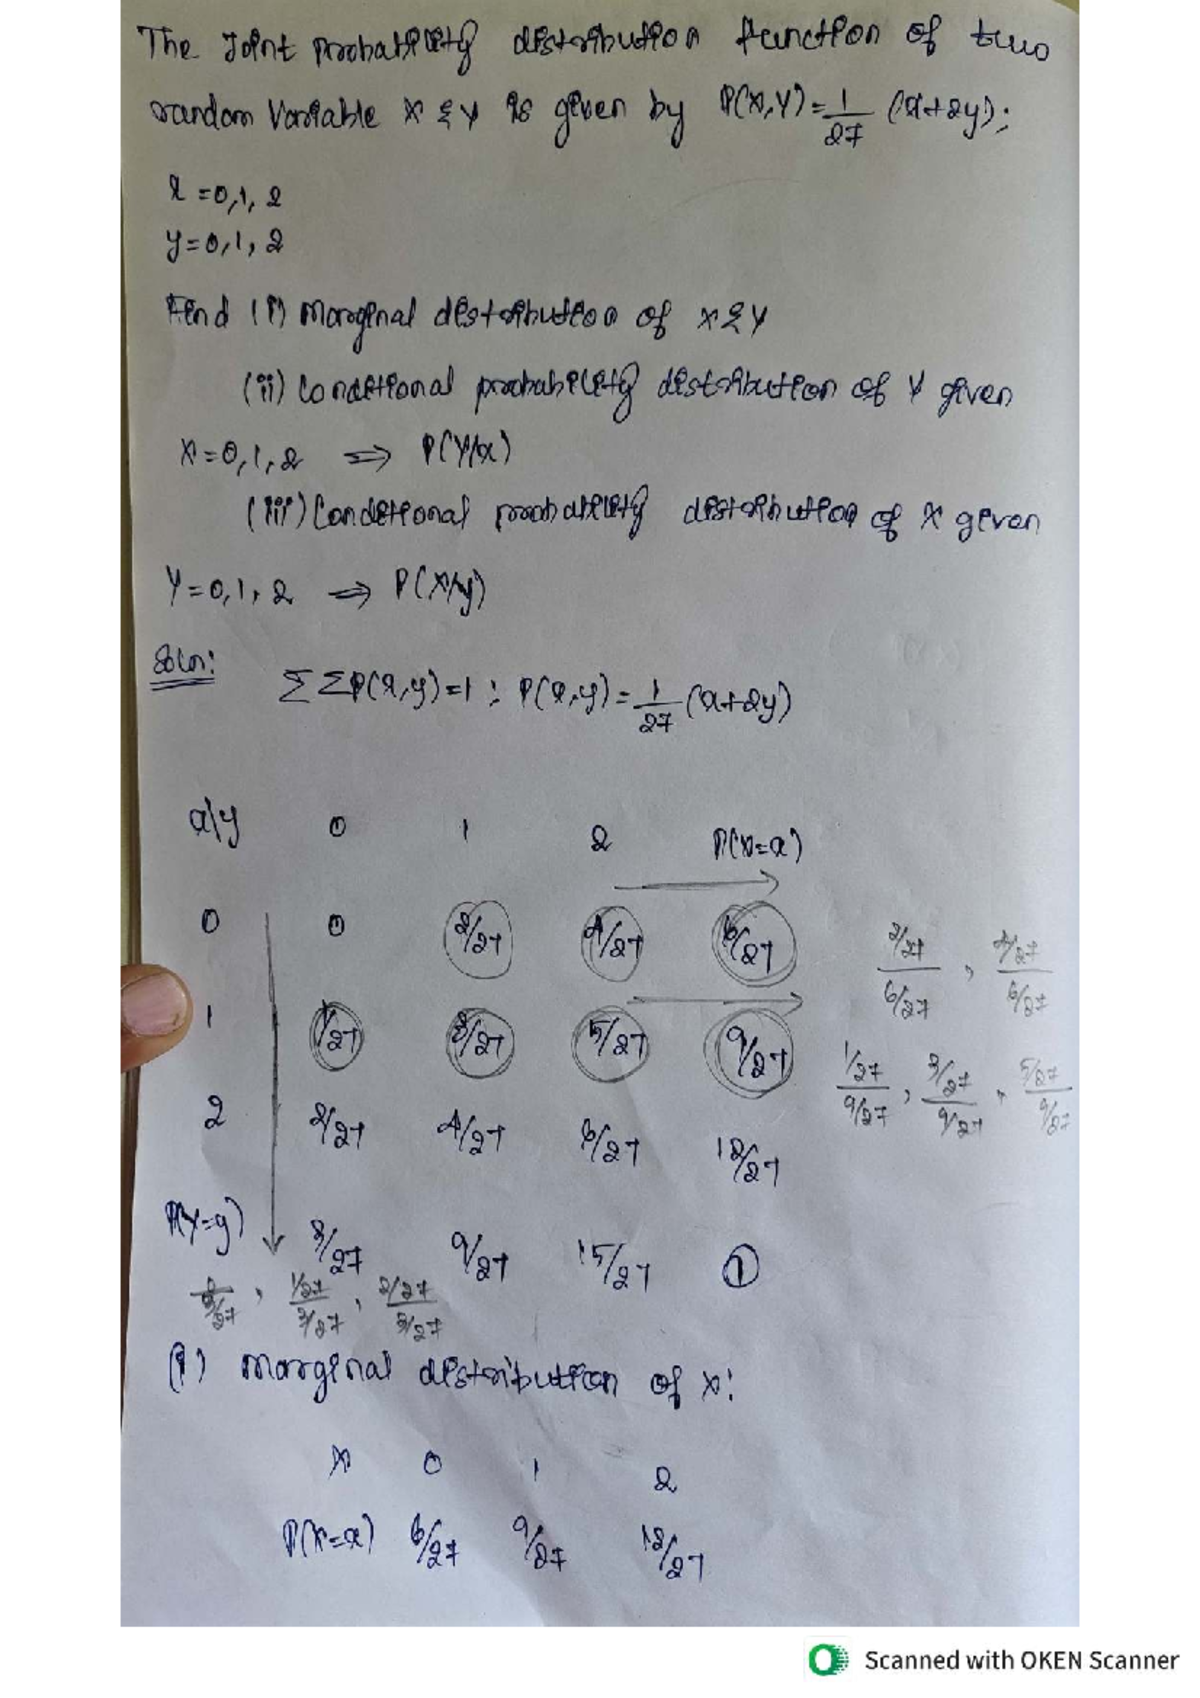 The Joint probability distribution function of two
random Variable X & Y is given by P(X,Y) = 1/27 (x+2y);
x = 0, 1, 2
y = 0, 1, 2
Find (i) Marginal distribution of X & Y
(ii) Conditional probability distribution of Y given
X = 0, 1, 2 ⟹ P(Y/x)
(iii) Conditional probability distribution of X given
Y = 0, 1, 2 ⟹ P(X/y)
Soln:
ΣΣP(x,y) = 1 ; P(x,y) = 1/27 (x+2y)
x\y 0 1 2 P(X=x)
0 0 2/27 4/27 6/27 (2/27)/(6/27) , (4/27)/(6/27)
1 1/27 3/27 5/27 9/27 (1/27)/(9/27) , (3/27)/(9/27) , (5/27)/(9/27)
2 2/27 4/27 6/27 12/27
P(Y=y) 3/27 9/27 15/27 1
0/(3/27) , (1/27)/(3/27) , (2/27)/(3/27)
(i) Marginal distribution of X:
X 0 1 2
P(X=x) 6/27 9/27 12/27
Scanned with OKEN Scanner